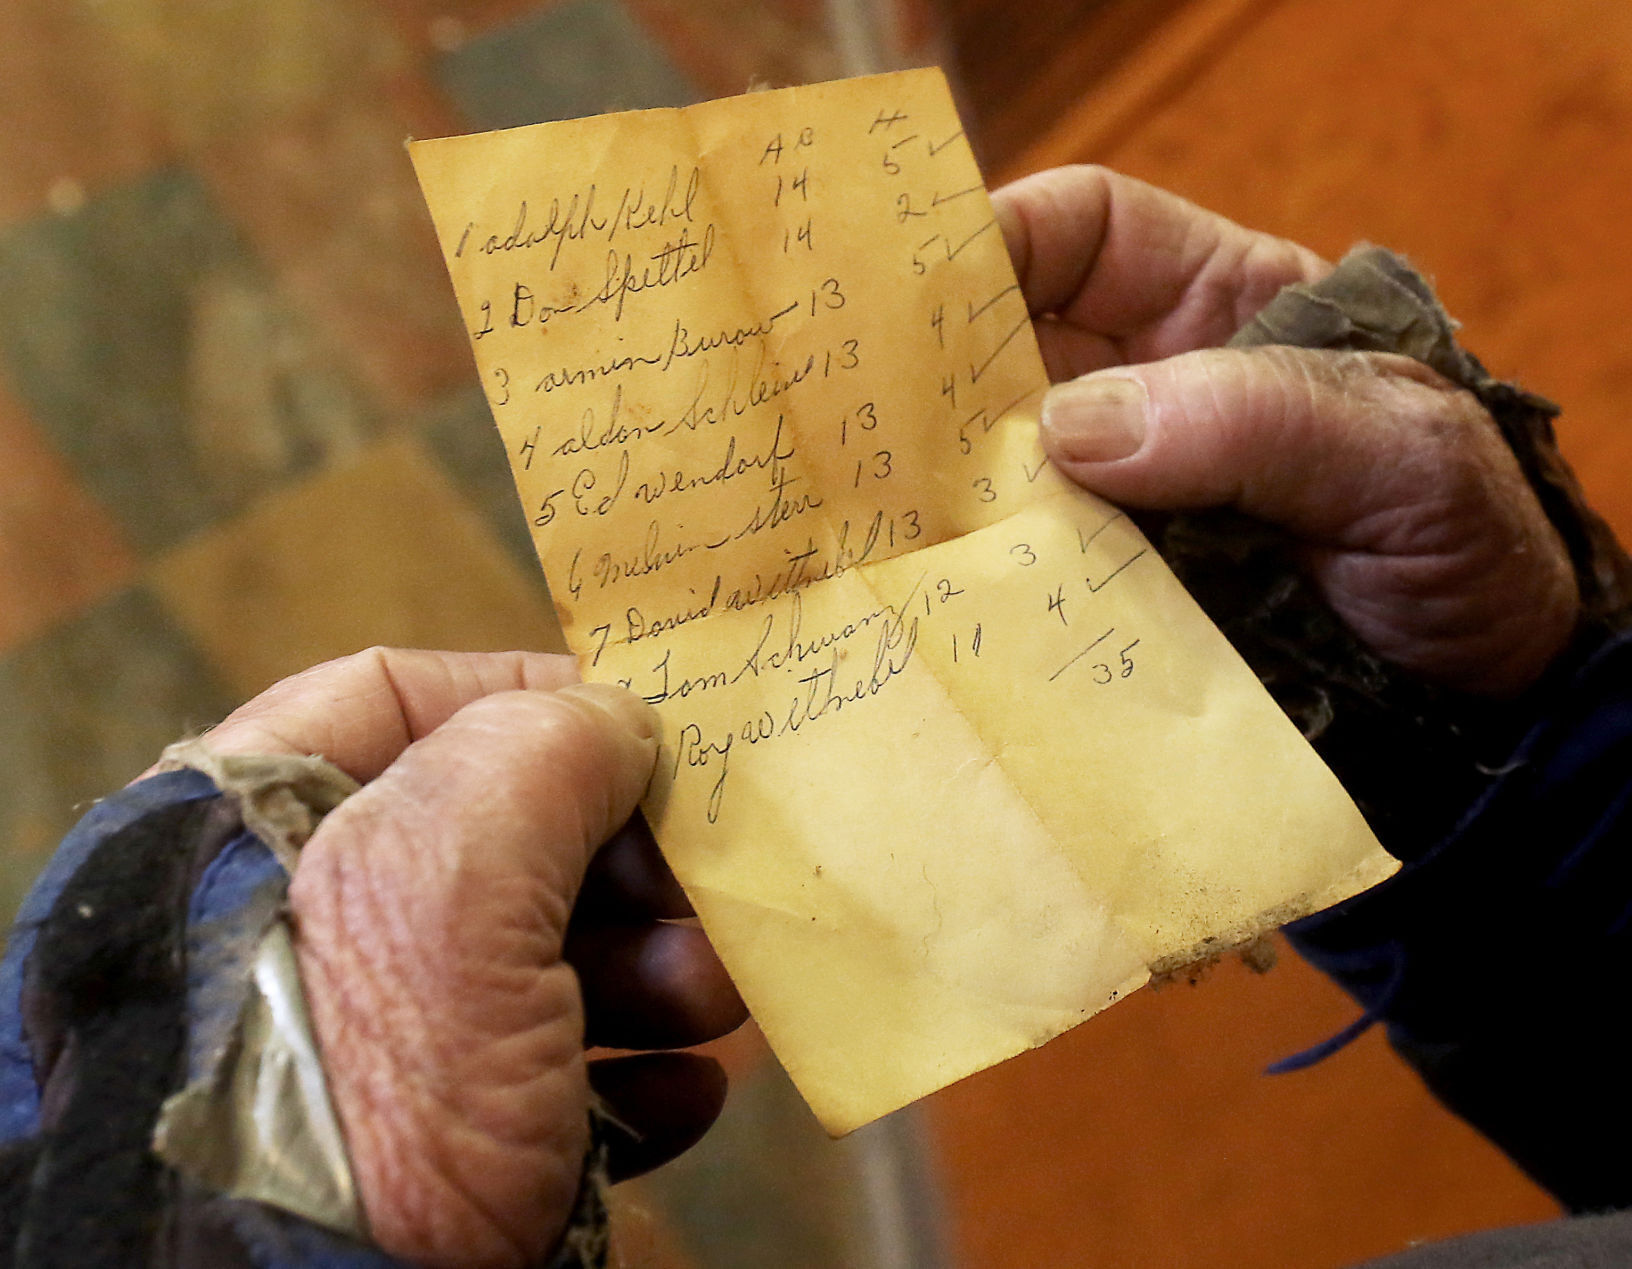 AB H
1 adolph Kehl 14 5 ✓
2 Don Spittel 14 2 ✓
3 armin Burow 13 5 ✓
4 aldon Schleine 13 4 ✓
5 Ed wendorf 13 4 ✓
6 Melvin sterr 13 5 ✓
7 David wittnebel 13 3 ✓
Tom Schwanz 12 3 ✓
Roy wittnebel 11 4 ✓
35